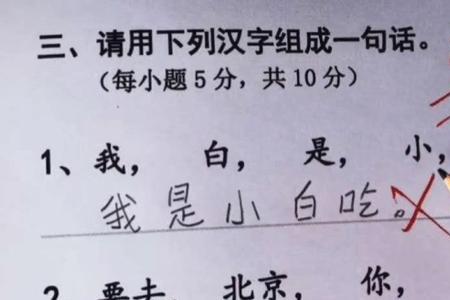 三、请用下列汉字组成一句话。
（每小题5分，共10分）
1、我， 白， 是， 小，
我是小白吃。
2、要去， 北京， 你，